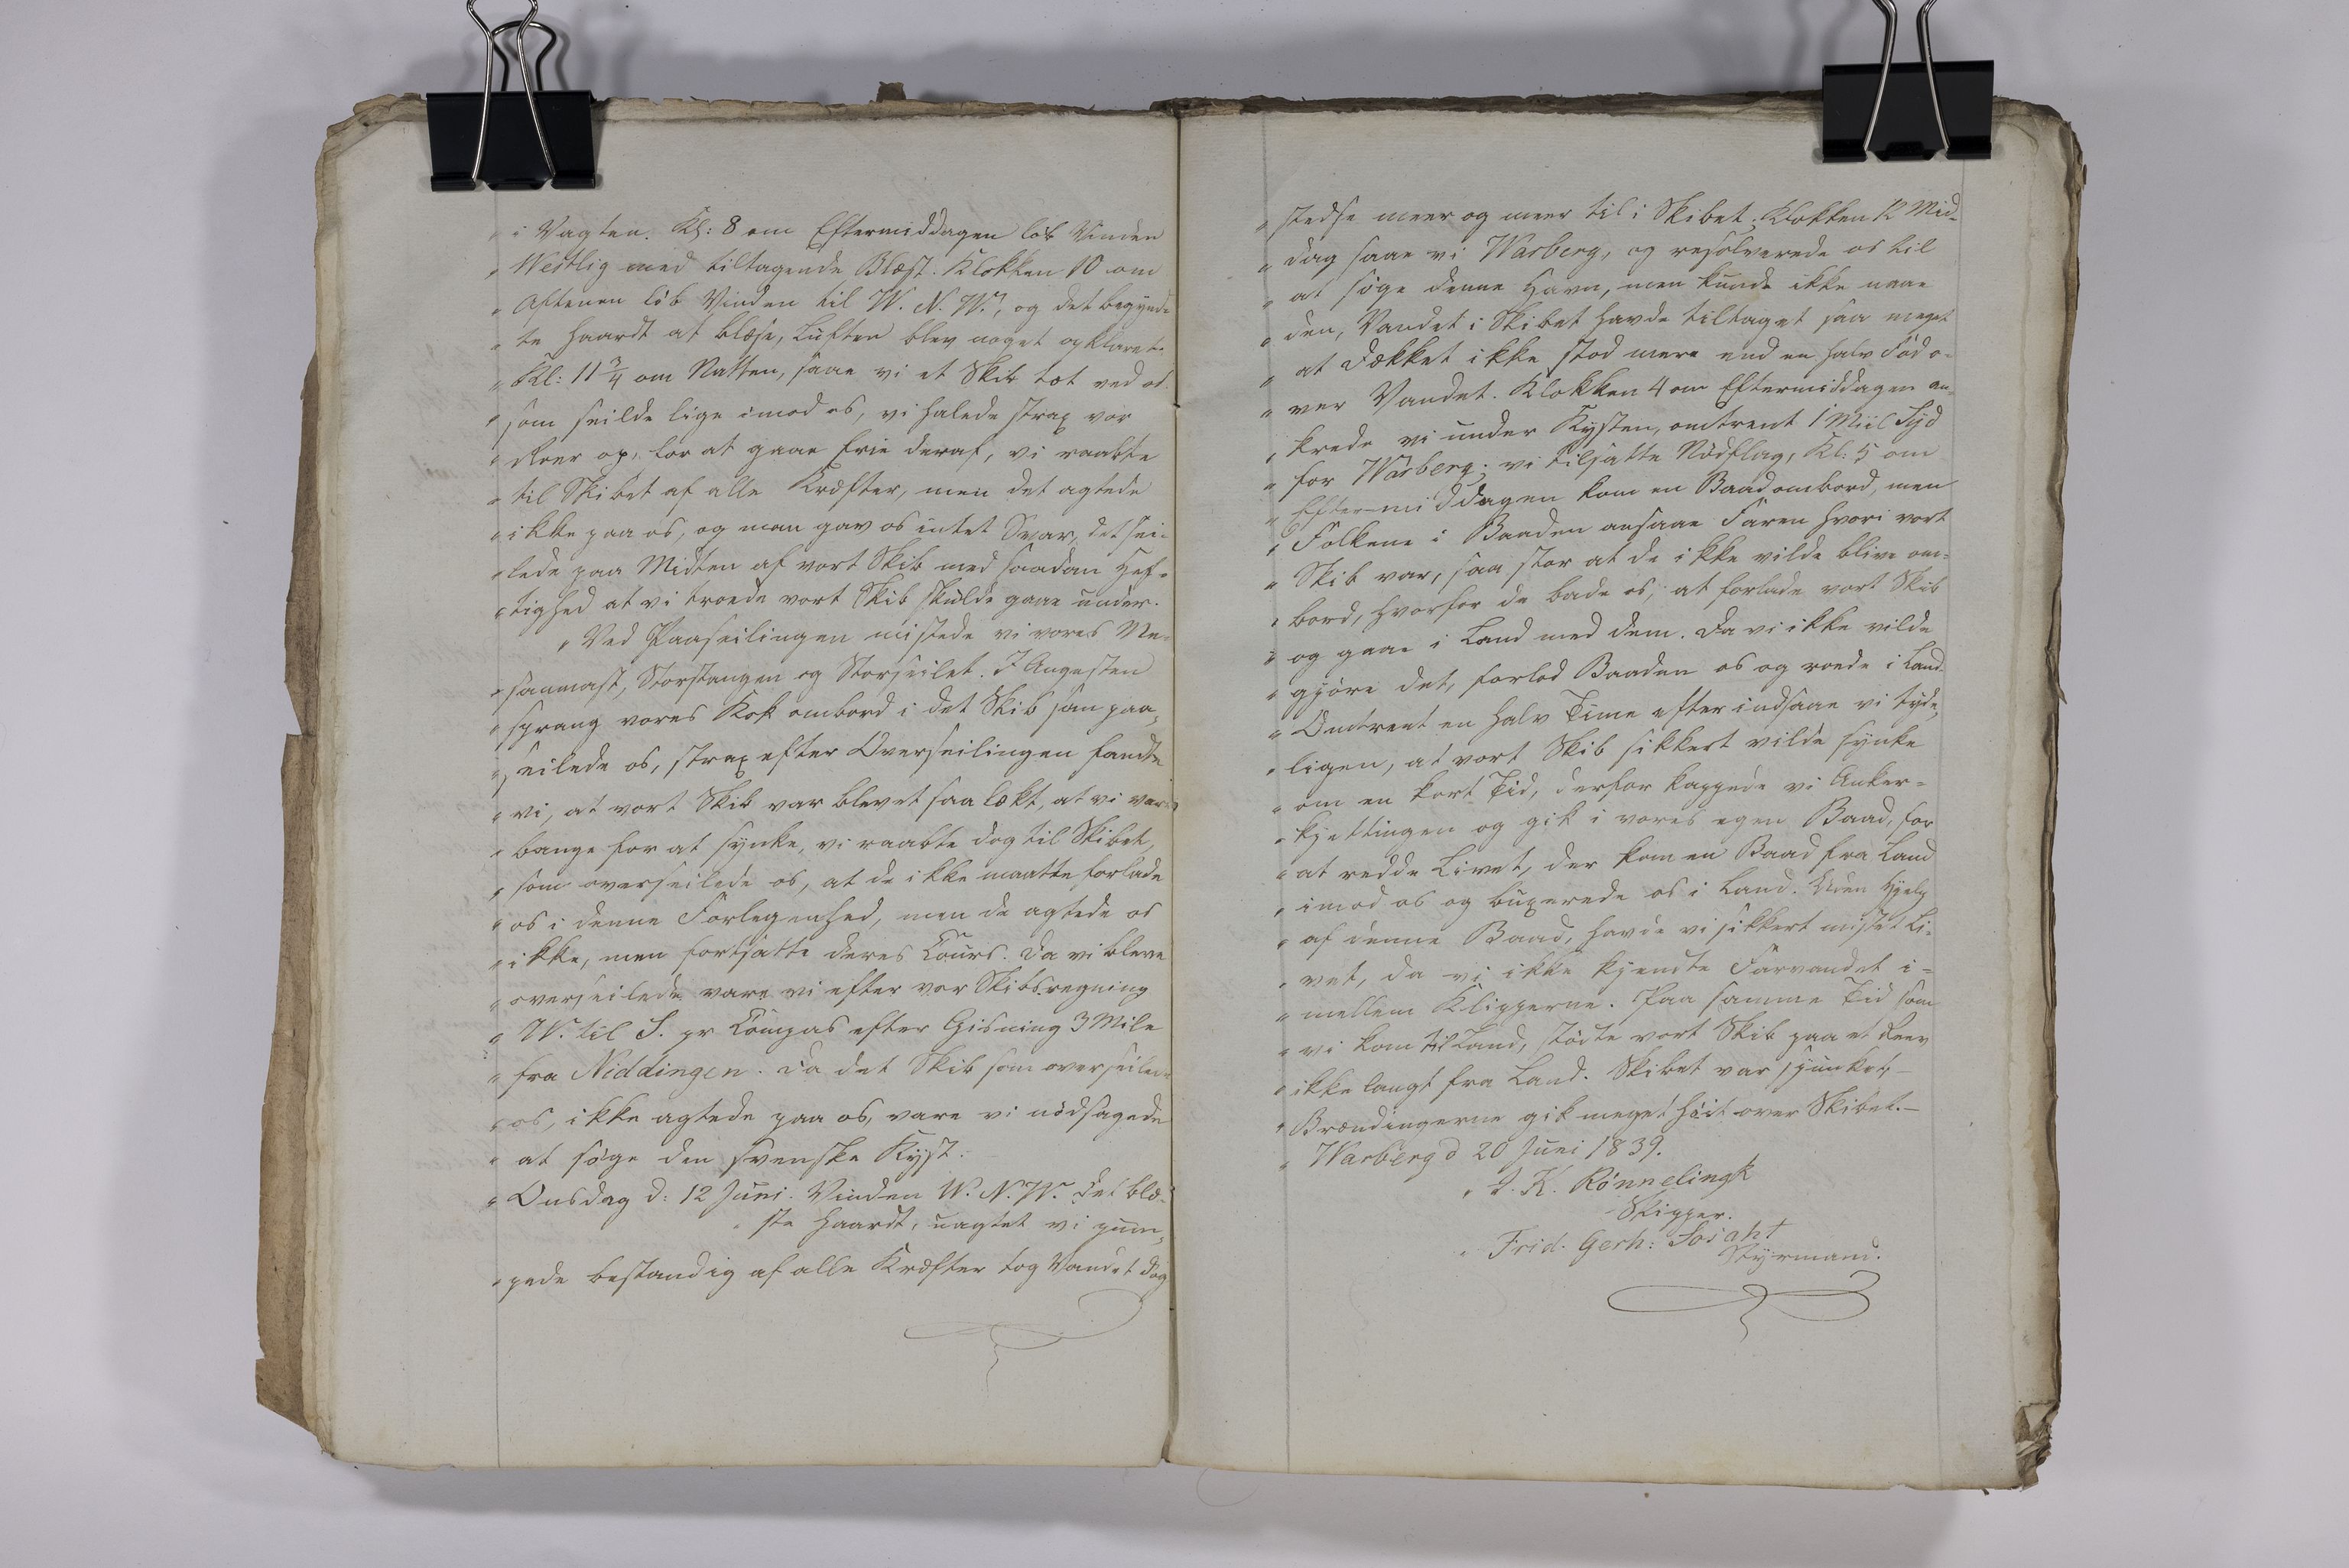 " i Vagten. Kl: 8 om Eftermiddagen løb Vinden
" Westlig med tiltagende Blæst. Klokken 10 om
" Aftenen løb Vinden til W. N. W., og det begynd-
" te haardt at blæse, Luften blev noget opklaret.
" Kl: 11 3/4 om Natten, saae vi et Skib tæt ved os
" som seilde lige imod os, vi halede strax vor
" Roer op, for at gaae frie deraf, vi raabte
" til Skibet af alle Kræfter, men det agtede
" ikke paa os, og man gav os intet Svar, det sei-
" lede paa Midten af vort Skib med saadan Hef-
" tighed at vi troede vort Skib skulde gaae under.
" Ved Paaseilingen mistede vi vores Me-
" sanmast, Storstangen og Storseilet. I Angesten
" sprang vores Kok ombord i det Skib som paa-
" seilede os, strax efter Overseilingen fandte
" vi, at vort Skib var blevet saa lækt, at vi var
" bange for at synke, vi raabte dog til Skibet,
" som overseilede os, at de ikke maatte forlade
" os i denne Forlegenhed, men de agtede os
" ikke, men fortsatte deres Cours. Da vi bleve
" overseilede vare vi efter vor Skibsregning
" W. til S. pr Compas efter Gisning 3 Mile
" fra Niddingen. Da det Skib som overseilede
" os, ikke agtede paa os, vare vi nødsagede
" at søge den svenske Kyst.
" Onsdag d: 12 Juni. Vinden W. N. W. det blæ-
" ste haardt, uagtet vi pum-
" pede bestandig af alle Kræfter tog Vandet dog
" stedse meer og meer til i Skibet. Klokken 12 Mid-
" dag saae vi Warberg, og resolverede os til
" at søge denne Havn, men kunde ikke naae
" den, Vandet i Skibet havde tiltaget saa meget
" at Dækket ikke stod mere end en halv Fod o-
" ver Vandet. Klokken 4 om Eftermiddagen an-
" krede vi under Kysten, omtrent 1 Miil Syd
" for Warberg; vi tilsatte Nødflag, Kl: 5 om
" Eftermiddagen kom en Baad ombord, men
" Folkene i Baaden ansaae Faren hvori vort
" Skib var, saa stor at de ikke vilde blive om-
" bord, hvorfor de bade os, at forlade vort Skib
" og gaae i Land med dem. Da vi ikke vilde
" gjøre det, forlod Baaden os og roede i Land.
" Omtrent en halv Time efter indsaae vi tyde-
" ligen, at vort Skib sikkert vilde synke
" om en kort Tid, derfor kappede vi Anker-
" kjettingen og gik i vores egen Baad, for
" at redde Livet, der kom en Baad fra Land
" imod os og buxerede os i Land. Uden Hjelp
" af denne Baad, havde vi sikkert mistet Li-
" vet, da vi ikke kjendte Farvandet i-
" mellem Klipperne. Paa samme Tid som
" vi kom til Land, stødte vort Skib paa et Reev
" ikke langt fra Land. Skibet var sjunket,-
" Brændingerne gik meget høit over Skibet.-
" Warberg d 20 Juni 1839.
" J. K. Rönnelingk
Skipper.
" Frid. Gerh: Josaht
Styrmand.